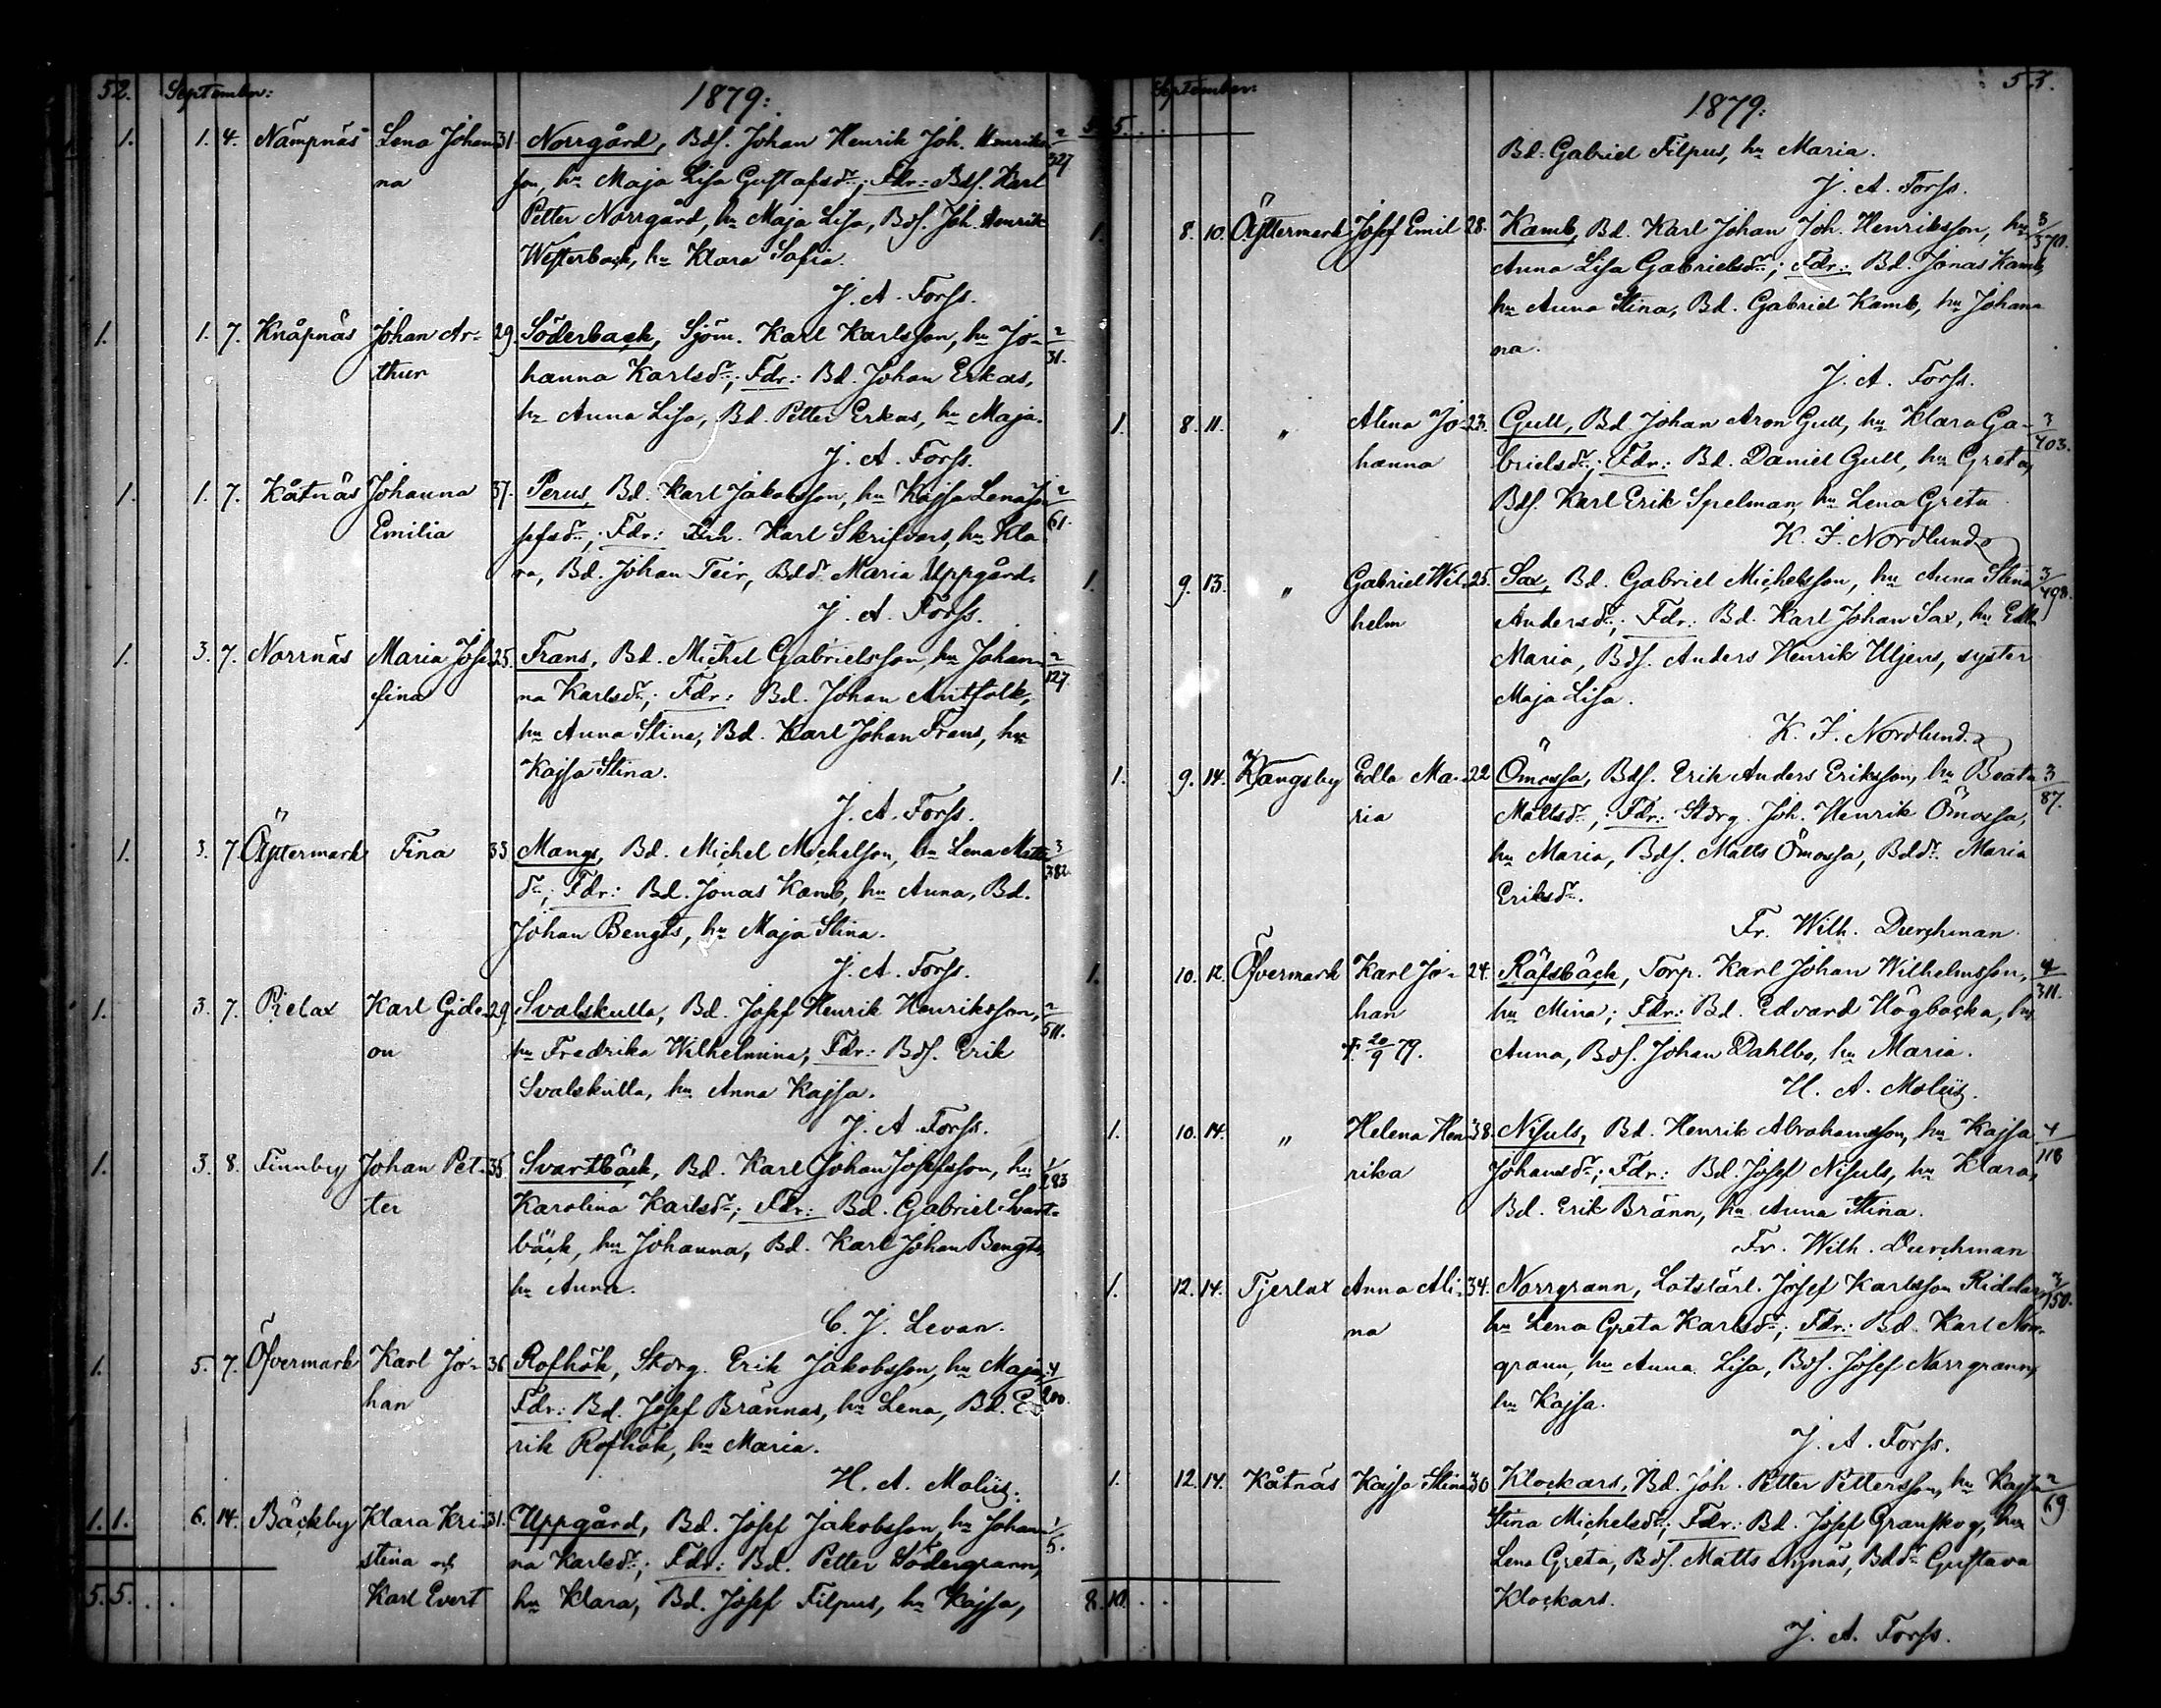 52. September: 1879:
1. 1. 4. Nämpnäs Lena Johan- 31. Norrgård, Bds. Johan Henrik Joh. Henriks- 2/327
na son, hu Maja Lisa Gustafsdr; Fdr: Bds. Karl
Petter Norrgård, hu Maja Lisa, Bds. Joh. Henrik
Westerback, hu Klara Sofia.
J. A. Forss.
1. 1. 7. Knåpnäs Johan Ar- 29. Söderback, Sjöm. Karl Karlsson, hu Jo- 2/31.
thur hanna Karlsdr; Fdr: Bd. Johan Erkas,
hu Anna Lisa, Bd. Petter Erkas, hu Maja.
J. A. Forss.
1. 1. 7. Kåtnäs Johanna 37. Perus, Bd. Karl Jakobsson, hu Kajsa Lena Jo- 2/61.
Emilia sefsdr; Fdr: Karl Skrifvars, hu Kla-
ra, Bd. Johan Teir, Bddr Maria Uppgård.
J. A. Forss.
1. 3. 7. Norrnäs Maria Jose- 25. Frans, Bd. Michel Gabrielsson, hu Johan- 2/127.
fina na Karlsdr; Fdr: Bd. Johan Antfolk,
hu Anna Stina, Bd. Karl Johan Frans, hu
Kajsa Stina.
J. A. Forss.
1. 3. 7. Östermark Fina 33 Mangs, Bd. Michel Michelsson, hu Lena Matts- 3/382.
dr; Fdr: Bd. Jonas Kamb, hu Anna, Bd.
Johan Bengts, hu Maja Stina.
J. A. Forss.
1. 3. 7. Pielax Karl Gide- 29. Svalskulla, Bd. Josef Henrik Henriksson, 2/511.
on hu Fredrika Wilhelmina; Fdr: Bds. Erik
Svalskulla, hu Anna Kajsa.
J. A. Forss.
1. 3. 8. Finnby Johan Pet- 35. Svartbäck, Bd. Karl Johan Josefsson, hu 1/283
ter Karolina Karlsdr; Fdr: Bd. Gabriel Svart-
bäck, hu Johanna, Bd. Karl Johan Bengts,
hu Anna.
C. J. Levan.
1. 5. 7. Öfvermark Karl Jo- 36. Rofhök, Stdrg. Erik Jakobsson, hu Maja; 4/200.
han Fdr: Bd. Josef Brännas, hu Lena, Bd. E-
rik Rofhök, hu Maria.
H. A. Moliis.
1. 1. 6. 14. Bäckby Klara Kri- 31. Uppgård, Bd. Josef Jakobsson, hu Johan- 1/5.
stina och na Karlsdr; Fdr: Bd. Petter Södergrann,
5. 5. . . Karl Evert hu Klara, Bd. Josef Filpus, hu Kajsa,
September: 1879: 53.
5. 5. . .
Bd. Gabriel Filpus, hu Maria.
J. A. Forss.
1. 8. 10. Östermark Josef Emil 28. Kamb, Bd. Karl Johan Joh. Henriksson, hu 3/370.
Anna Lisa Gabrielsdr; Fdr: Bd. Jonas Kamb,
hu Anna Stina, Bd. Gabriel Kamb, hu Johan-
na.
J. A. Forss.
1. 8. 11. " Alina Jo- 23. Gull, Bd. Johan Aron Gull, hu Klara Ga- 3/403.
hanna brielsdr; Fdr: Bd. Daniel Gull, hu Greta,
Bds. Karl Erik Spelman, hu Lena Greta
K. F. Nordlund
1. 9. 13. " Gabriel Wil- 25. Sax, Bd. Gabriel Michelsson, hu Anna Stina 3/498.
helm Andersdr; Fdr: Bd. Karl Johan Sax, hu Edla
Maria, Bds. Anders Henrik Uljens, syster
Maja Lisa.
K. F. Nordlund.
1. 9. 14. Rangsby Edla Ma- 22 Ömossa, Bds. Erik Anders Eriksson, hu Beata 3/87.
ria Mattsdr; Fdr: Stdrg. Joh. Henrik Ömossa,
hu Maria, Bds. Matts Ömossa, Bddr Maria
Eriksdr.
Fr. Wilh. Durchman.
1. 10. 12. Öfvermark Karl Jo- 24. Räfsbäck, Torp. Karl Johan Wilhelmsson, 4/311.
han hu Mina; Fdr: Bd. Edvard Högbacka, hu
†. 20/9 79. Anna, Bds. Johan Dahlbo, hu Maria.
H. A. Moliis.
1. 10. 14. " Helena Hen- 38. Nisuls, Bd. Henrik Abrahamsson, hu Kajsa 4/118
rika Johansdr; Fdr: Bd. Josef Nisuls, hu Klara,
Bd. Erik Bränn, hu Anna Stina.
Fr. Wilh. Durchman
1. 12. 14. Tjerlax Anna Ali- 34. Norrgrann, Lotslärl. Josef Karlsson Riddar, 3/750.
na hu Lena Greta Karlsdr; Fdr: Bd. Karl Norr-
grann, hu Anna Lisa, Bds. Josef Norrgrann,
hu Kajsa.
J. A. Forss.
1. 12. 14. Kåtnäs Kajsa Stina 30. Klockars, Bd. Joh. Petter Pettersson, hu Kajsa 2/69.
Stina Michelsdr; Fdr: Bd. Josef Granskog, hu
Lena Greta, Bds. Matts Nynäs, Bddr Gustava
8. 10. . . Klockars.
J. A. Forss.